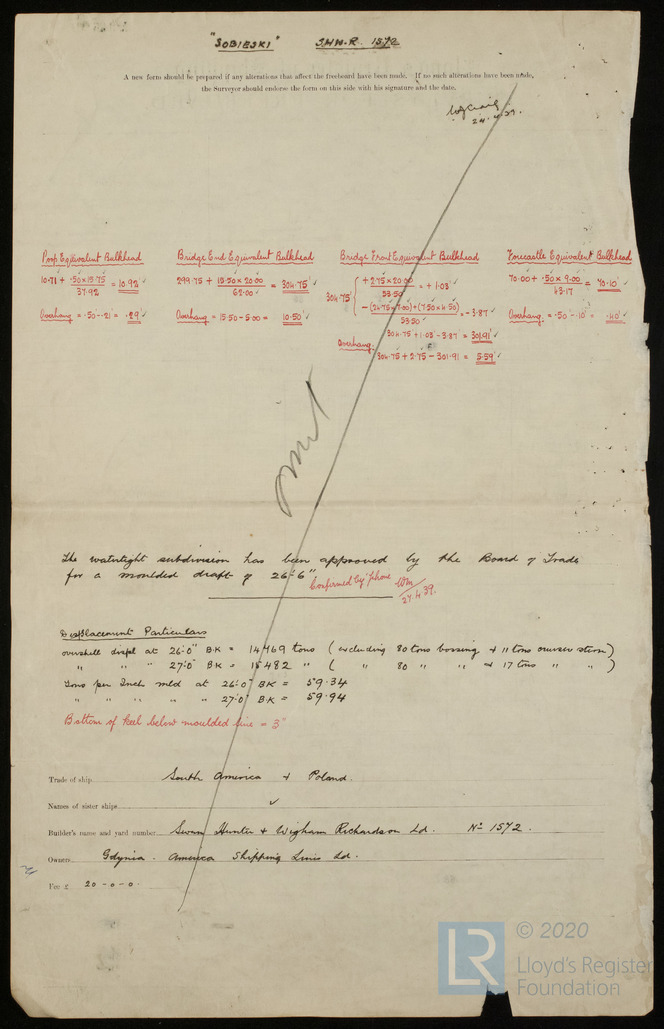 "SOBIESKI" S.H.W.R. 1572
A new form should be prepared if any alterations that affect the freeboard have been made. If no such alterations have been made,
the Surveyor should endorse the form on this side with his signature and the date.
24.4.39.
Poop Equivalent Bulkhead
10.71 + .50 x 15.75 / 37.92 = 10.92' ✓
Overhang = .50 - .21 = .29' ✓
Bridge End Equivalent Bulkhead
299.75 + 15.50 x 20.00 / 62.00 = 304.75' ✓
Overhang = 15.50 - 5.00 = 10.50' ✓
Bridge Front Equivalent Bulkhead
304.75' { + 2.75 x 20.00 / 53.50 = + 1.03' ✓
- (24.75 x 7.00) + (7.50 x 4.50) / 53.50 = - 3.87 ✓
304.75 + 1.03 - 3.87 = 301.91' ✓
Overhang.
304.75 + 2.75 - 301.91 = 5.59' ✓
Forecastle Equivalent Bulkhead
40.00 + .50 x 9.00 / 43.17 = 40.10' ✓
Overhang = .50 - .10 = .40' ✓
The watertight subdivision has been approved by the Board of Trade
for a moulded draft of 26'-6"
Confirmed by 'phone
24.4.39.
Displacement Particulars
overshell displ at 26'.0" B.K = 14469 tons ( excluding 80 tons bossing & 11 tons cruiser stern )
" " " 27'.0" B.K = 15482 " ( " 80 " " & 17 tons " " )
Tons per Inch mld at 26'.0" B.K = 59.34
" " " " " 27'.0" B.K = 59.94
Bottom of keel below moulded line = 3"
Trade of ship South America & Poland.
Names of sister ships ✓
Builder's name and yard number Swan Hunter & Wigham Richardson Ld. No 1572.
Owners Gdynia - America Shipping Lines Ld.
Fee £ 20 - 0 - 0
LR
© 2020
Lloyd's Register
Foundation